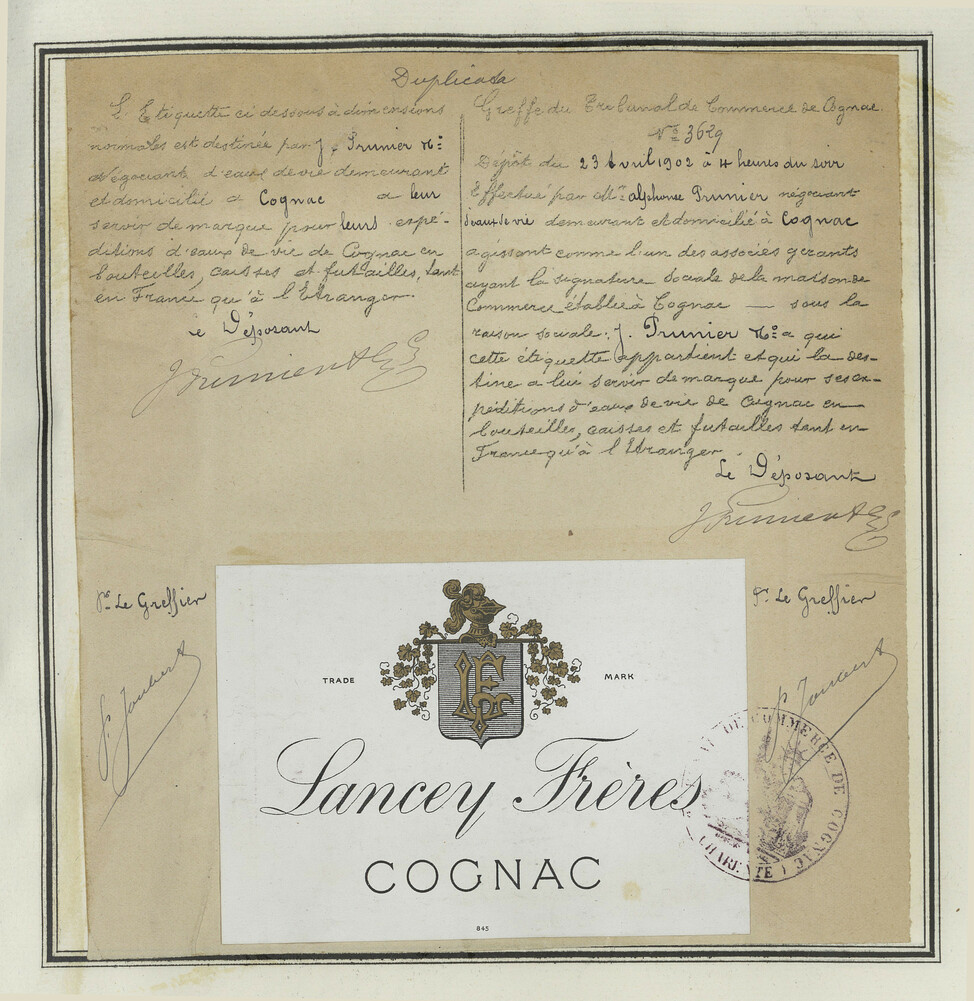 Duplicata
L'Etiquette ci dessous à dimensions
normales est destinée par J. Prunier & Cie
négociants d'eaux de vie demeurant
et domicilié à Cognac à leur
servir de marque pour leurs expé-
ditions d'eaux de vie de Cognac en
bouteilles, caisses et futailles, tant
en France qu'à l'Etranger.
Le Déposant
J Prunier & Cie
Greffe du Tribunal de Commerce de Cognac
No 3629
Dépôt du 23 Avril 1902 à 4 heures du soir
Effectué par Mr. Alphonse Prunier négociant
d'eaux de vie demeurant et domicilié à Cognac
agissant comme l'un des associés gérants
ayant la signature sociale de la maison de
Commerce établie à Cognac — sous la
raison sociale: J. Prunier & Cie à qui
cette étiquette appartient et qui la des-
tine à lui servir de marque pour ses ex-
péditions d'eaux de vie de Cognac en
bouteilles, caisses et futailles tant en
France qu'à l'Etranger
Le Déposant
J Prunier & Cie
Pr. Le Greffier
P. Joubert
Pr. Le Greffier
P. Joubert
TRADE MARK
Lancey Frères
COGNAC
845
DE COMMERCE DE COGNAC
(CHARENTE)